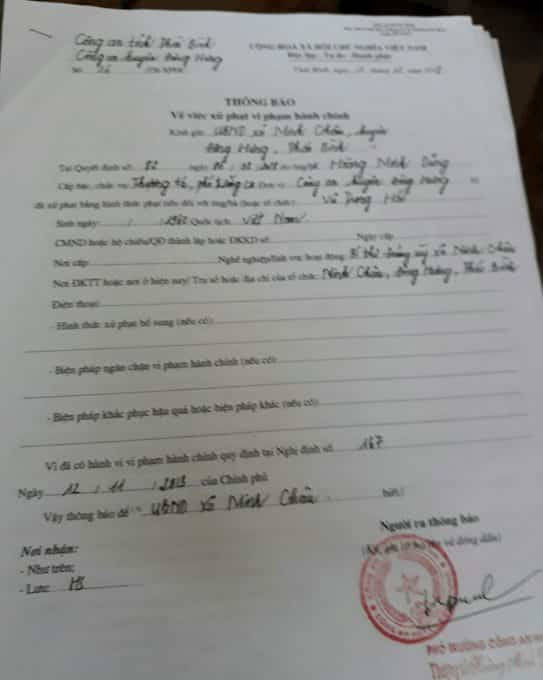 Công an tỉnh Thái Bình
Công an huyện Đông Hưng
CỘNG HOÀ XÃ HỘI CHỦ NGHĨA VIỆT NAM
Độc lập - Tự do - Hạnh phúc
Thái Bình, ngày
THÔNG BÁO
Về việc xử phạt vi phạm hành chính
Kính gửi: UBND xã Minh Châu, huyện
Đông Hưng, Thái Bình
Tại Quyết định số: 82 ngày Hoàng Minh
Cấp bậc, chức vụ: Thượng tá, phó Đơn vị: Công an huyện Đông Hưng
đã xử phạt bằng hình thức phạt tiền đối với ông/bà (hoặc tổ chức): Vũ
Sinh ngày: / / Quốc tịch: Việt Nam
CMND hoặc hộ chiếu/QĐ thành lập hoặc ĐKKD số: Ngày cấp
Nơi cấp Nghề nghiệp/lĩnh vực hoạt động: Bí thư Đảng uỷ xã Minh Châu
Nơi ĐKTT hoặc nơi ở hiện nay/ Trụ sở hoặc địa chỉ của tổ chức: Minh Châu, Đông Hưng, Thái Bình
Điện thoại:
- Hình thức xử phạt bổ sung (nếu có):
- Biện pháp ngăn chặn vi phạm hành chính (nếu có):
- Biện pháp khắc phục hậu quả hoặc biện pháp khác (nếu có):
Vì đã có hành vi vi phạm hành chính quy định tại Nghị định số 167
Ngày 12 / 11 / 2013 của Chính phủ
Vậy thông báo để UBND xã Minh Châu biết./.
Người ra thông báo
Nơi nhận:
- Như trên;
- Lưu: HS
PHÓ TRƯỞNG CÔNG AN